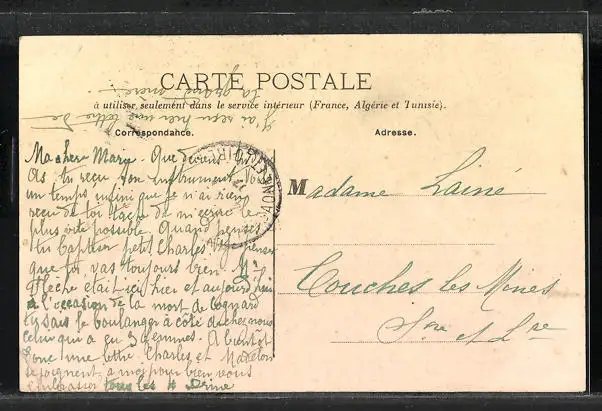 CARTE POSTALE
à utiliser seulement dans le service intérieur (France, Algérie et Tunisie).
Correspondance.
Adresse.
J'ai reçu hier une lettre de
ta grand'mère.
Ma chère Marie. Que deviens-tu
As-tu reçu ton instrument. Voici
un temps infini que je n'ai rien
reçu de toi tâche de m'écrire le
plus vite possible. Quand penses
tu baptiser petit Charles
que toi vas toujours bien. Mr
Flèche était ici hier et aujourd'hui
à l'occasion de la mort de Cognard
tu sais le boulanger à côté de chez nous
celui qui a eu 3 femmes. A bientôt
donc une lettre. Charles et Madelon
se joignent à moi pour bien vous
embrasser tous les 4
Madame Lainé
Couches les Mines
Sne et Lre